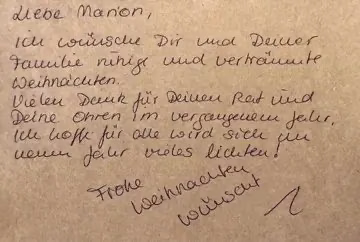 Liebe Marion,
Ich wünsche Dir und Deiner
Familie ruhige und verträumte
Weihnachten.
Vielen Dank für Deinen Rat und
Deine Ohren im vergangenem Jahr.
Ich hoffe für alle wird sich im
neuen Jahr vieles lichten!
Frohe
Weihnachten
wünscht